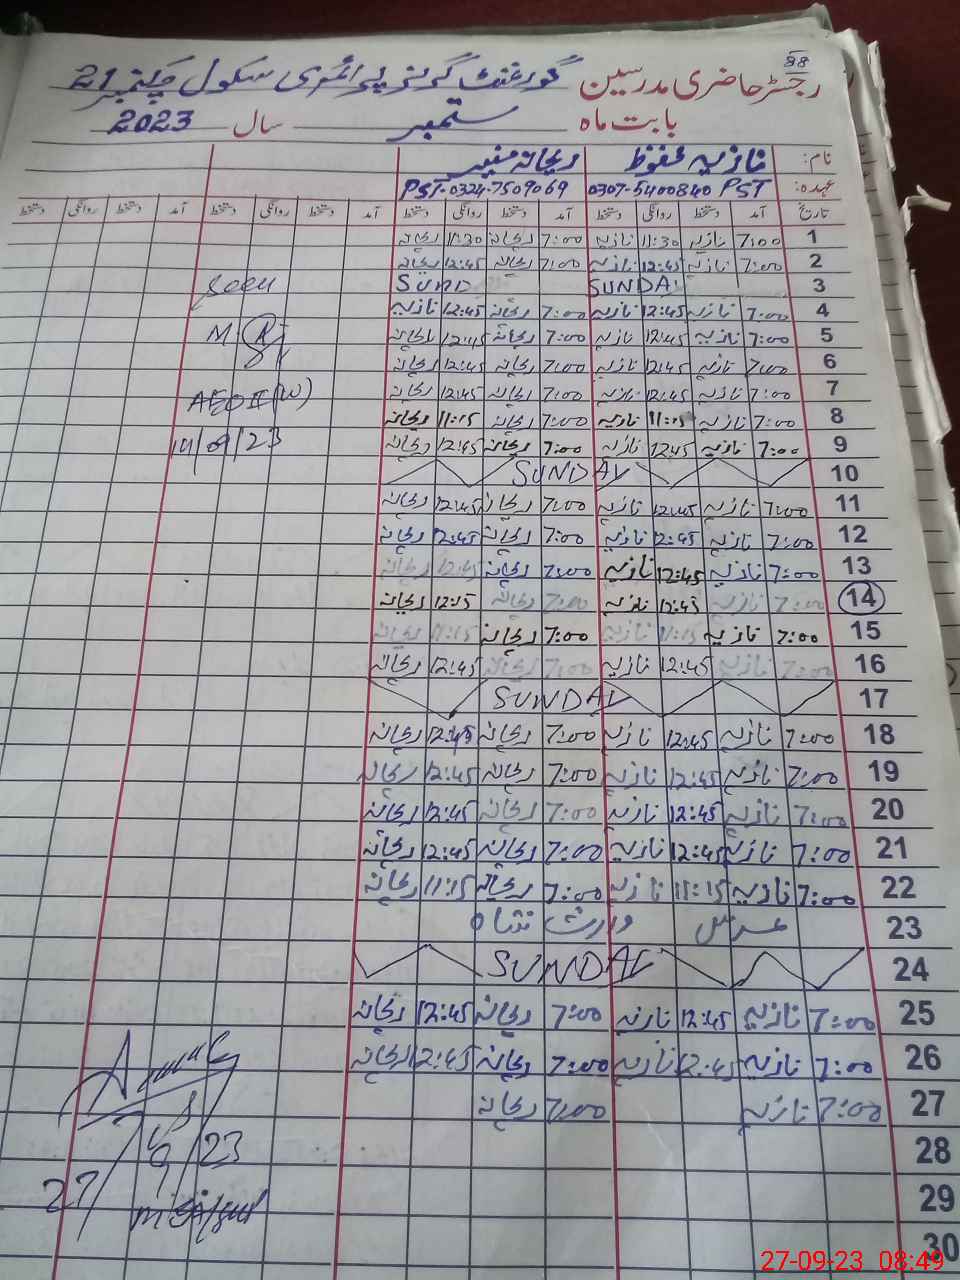 88
رجسٹر حاضری مدرسین گورنمنٹ گرلز پرائمری سکول چک نمبر 21
بابت ماہ ستمبر سال 2023
نام: نازیہ محفوظ ریحانہ منیر
عہدہ: 0307-5400840 PST PST-0324-7509069
تاریخ آمد دستخط روانگی دستخط آمد دستخط روانگی دستخط آمد دستخط روانگی دستخط آمد دستخط روانگی
1 7:00 نازیہ 11:30 نازیہ 7:00 ریحانہ 11:30 ریحانہ
2 7:00 نازیہ 12:45 نازیہ 7:00 ریحانہ 12:45 ریحانہ
3 SUNDAY SUND
4 7:00 نازیہ 12:45 نازیہ 7:00 ریحانہ 12:45 نازیہ
5 7:00 نازیہ 12:45 نازیہ 7:00 ریحانہ 12:45 ریحانہ
6 7:00 نازیہ 12:45 نازیہ 7:00 ریحانہ 12:45 ریحانہ
7 7:00 نازیہ 12:45 نازیہ 7:00 ریحانہ 12:45 ریحانہ
8 7:00 نازیہ 11:15 نازیہ 7:00 ریحانہ 11:15 ریحانہ
9 7:00 نازیہ 12:45 نازیہ 7:00 ریحانہ 12:45 ریحانہ
10 SUNDAY
11 7:00 نازیہ 12:45 نازیہ 7:00 ریحانہ 12:45 ریحانہ
12 7:00 نازیہ 12:45 نازیہ 7:00 ریحانہ 12:45 ریحانہ
13 7:00 نازیہ 12:45 نازیہ 7:00 ریحانہ 12:45 ریحانہ
14 7:00 نازیہ 12:45 نازیہ 7:00 ریحانہ 12:15 ریحانہ
15 7:00 نازیہ 11:15 نازیہ 7:00 ریحانہ 11:15 ریحانہ
16 7:00 نازیہ 12:45 نازیہ 7:00 ریحانہ 12:45 ریحانہ
17 SUNDAY
18 7:00 نازیہ 12:45 نازیہ 7:00 ریحانہ 12:45 ریحانہ
19 7:00 نازیہ 12:45 نازیہ 7:00 ریحانہ 12:45 ریحانہ
20 7:00 نازیہ 12:45 نازیہ 7:00 ریحانہ 12:45 ریحانہ
21 7:00 نازیہ 12:45 نازیہ 7:00 ریحانہ 12:45 ریحانہ
22 7:00 نازیہ 11:15 نازیہ 7:00 ریحانہ 11:15 ریحانہ
23 عرس وارث شاہ
24 SUNDAY
25 7:00 نازیہ 12:45 نازیہ 7:00 ریحانہ 12:45 ریحانہ
26 7:00 نازیہ 12:45 نازیہ 7:00 ریحانہ 12:45 ریحانہ
27 7:00 نازیہ 7:00 ریحانہ
28
29
30
Seen
AEO II (W)
14/09/23
27/9/23
27-09-23 08:49